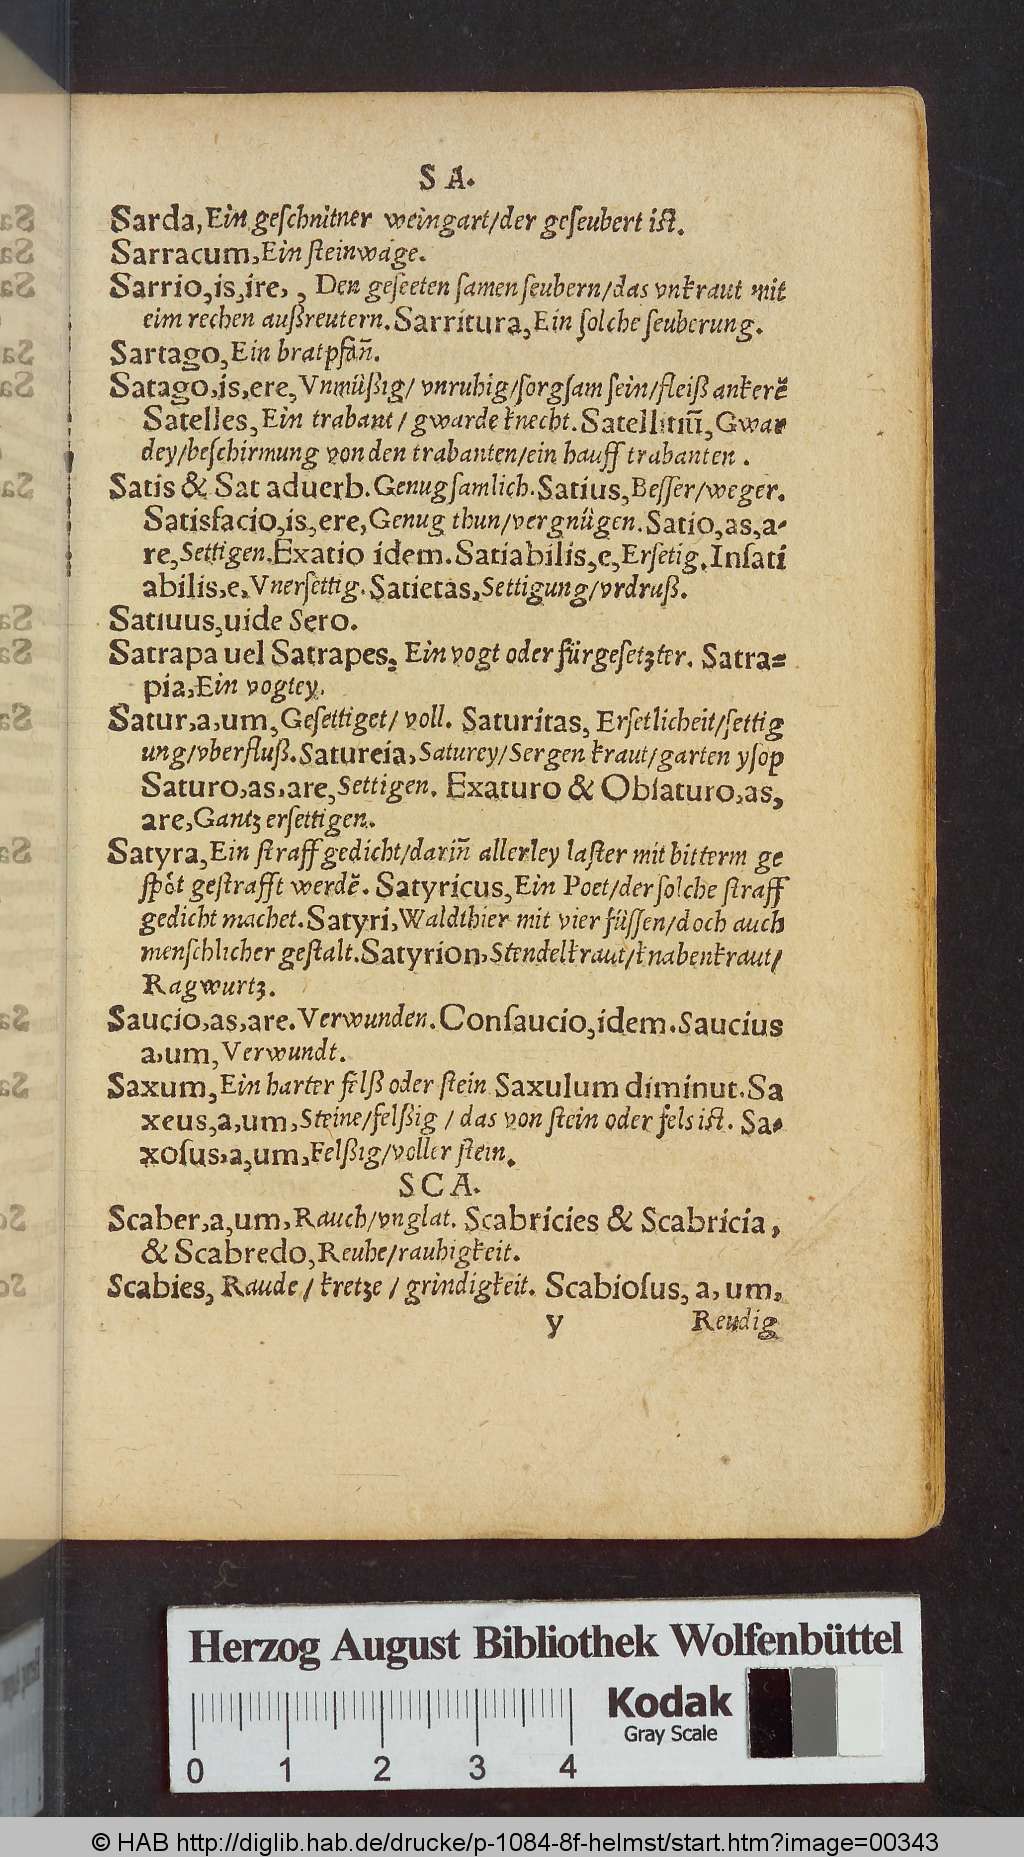 S A.
Sarda, Ein geſchnitner weingart/der geſeubert iſt.
Sarracum, Ein ſteinwage.
Sarrio, is, ire, , Den geſeeten ſamen ſeubern/das vnkraut mit
eim rechen außreutern. Sarritura, Ein ſolche ſeuberung.
Sartago, Ein bratpfañ.
Satago, is, ere, Vnmüßig/ vnruhig/ſorgſam ſein/fleiß ankerẽ
Satelles, Ein trabant/ gwarde knecht. Satellitiũ, Gwar
dey/beſchirmung von den trabanten/ein hauff trabanten .
Satis & Sat aduerb. Genugſamlich. Satius, Beſſer/weger.
Satisfacio, is, ere, Genug thun/vergnügen. Satio, as, a-
re, Settigen. Exatio idem. Satiabilis, e, Erſetig. Inſati
abilis, e, Vnerſettig. Satietas, Settigung/vrdruß.
Satiuus, uide Sero.
Satrapa uel Satrapes, Ein vogt oder fürgeſetzter. Satra=
pia, Ein vogtey.
Satur, a, um, Geſettiget/ voll. Saturitas, Erſetlicheit/ſettig
ung/vberfluß. Satureia, Saturey/Sergen kraut/garten yſop
Saturo, as, are, Settigen. Exaturo & Obſaturo, as,
are, Gantz erſettigen.
Satyra, Ein ſtraff gedicht/dariñ allerley laſter mit bitterm ge
ſpöt geſtrafft werdẽ. Satyricus, Ein Poet/der ſolche ſtraff
gedicht machet. Satyri, Waldthier mit vier füſſen/doch auch
menſchlicher geſtalt. Satyrion, Stendelkraut/knabenkraut/
Ragwurtz.
Saucio, as, are. Verwunden. Conſaucio, idem. Saucius
a, um, Verwundt.
Saxum, Ein harter felß oder ſtein Saxulum diminut. Sa
xeus, a, um, Steine/felßig / das von ſtein oder fels iſt. Sa-
xoſus, a, um, Felßig/voller ſtein.
S C A.
Scaber, a, um, Rauch/vnglat. Scabricies & Scabricia,
& Scabredo, Reuhe/rauhigkeit.
Scabies, Raude / kretze / grindigkeit. Scabioſus, a, um,
y Reudig
Herzog August Bibliothek Wolfenbüttel
Kodak
Gray Scale
0 1 2 3 4
© HAB http://diglib.hab.de/drucke/p-1084-8f-helmst/start.htm?image=00343